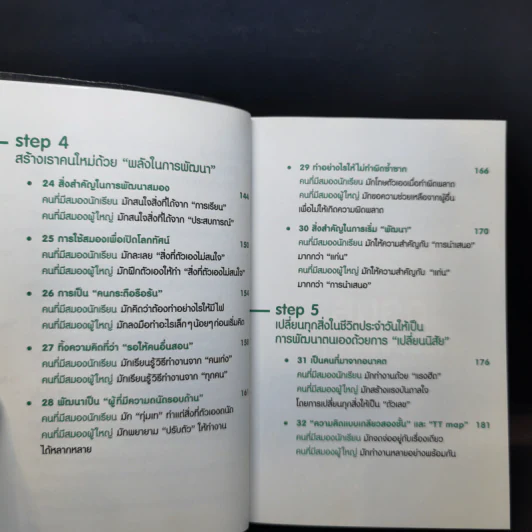 step 4
สร้างเราคนใหม่ด้วย “พลังในการพัฒนา”
• 24 สิ่งสำคัญในการพัฒนาสมอง 144
คนที่มีสมองนักเรียน มักสนใจสิ่งที่ได้จาก “การเรียน”
คนที่มีสมองผู้ใหญ่ มักสนใจสิ่งที่ได้จาก “ประสบการณ์”
• 25 การใช้สมองเพื่อเปิดโลกทัศน์ 150
คนที่มีสมองนักเรียน มักละเลย “สิ่งที่ตัวเองไม่สนใจ”
คนที่มีสมองผู้ใหญ่ มักฝึกตัวเองให้ทำ “สิ่งที่ตัวเองไม่สนใจ”
• 26 การเป็น “คนกระตือรือร้น” 154
คนที่มีสมองนักเรียน มักคิดว่าต้องทำอย่างไรให้มีไฟ
คนที่มีสมองผู้ใหญ่ มักลงมือทำอะไรเล็กๆ น้อยๆ ก่อนเริ่มคิด
• 27 ทิ้งความคิดที่ว่า “รอให้คนอื่นสอน”
คนที่มีสมองนักเรียน มักเรียนรู้วิธีทำงานจาก “คนเก่ง”
คนที่มีสมองผู้ใหญ่ มักเรียนรู้วิธีทำงานจาก “ทุกคน”
• 28 พัฒนาเป็น “ผู้ที่มีความถนัดรอบด้าน”
คนที่มีสมองนักเรียน มัก “ทุ่มเท” ทำแต่สิ่งที่ตัวเองถนัด
คนที่มีสมองผู้ใหญ่ มักพยายาม “ปรับตัว” ให้ทำงาน
ได้หลากหลาย
• 29 ทำอย่างไรให้ ไม่ทำผิดซ้ำซาก 166
คนที่มีสมองนักเรียน มักโทษตัวเองเมื่อทำผิดพลาด
คนที่มีสมองผู้ใหญ่ มักขอความช่วยเหลือจากผู้อื่น
เพื่อไม่ให้เกิดความผิดพลาด
• 30 สิ่งสำคัญในการเริ่ม “พัฒนา” 170
คนที่มีสมองนักเรียน มักให้ความสำคัญกับ “การนำเสนอ”
มากกว่า “แก่น”
คนที่มีสมองผู้ใหญ่ มักให้ความสำคัญกับ “แก่น”
มากกว่า “การนำเสนอ”
step 5
เปลี่ยนทุกสิ่งในชีวิตประจำวันให้เป็น
การพัฒนาตนเองด้วยการ “เปลี่ยนนิสัย”
• 31 เป็นคนที่มาจากอนาคต 176
คนที่มีสมองนักเรียน มักทำงานด้วย “แรงฮึด”
คนที่มีสมองผู้ใหญ่ มักสร้างแรงบันดาลใจ
โดยการเปลี่ยนทุกสิ่งให้เป็น “ตัวเลข”
• 32 “ความคิดแบบเกลียวสองชั้น” และ “TT map” 181
คนที่มีสมองนักเรียน มักจดจ่ออยู่กับเรื่องเดียว
คนที่มีสมองผู้ใหญ่ มักทำงานหลายอย่างพร้อมกัน